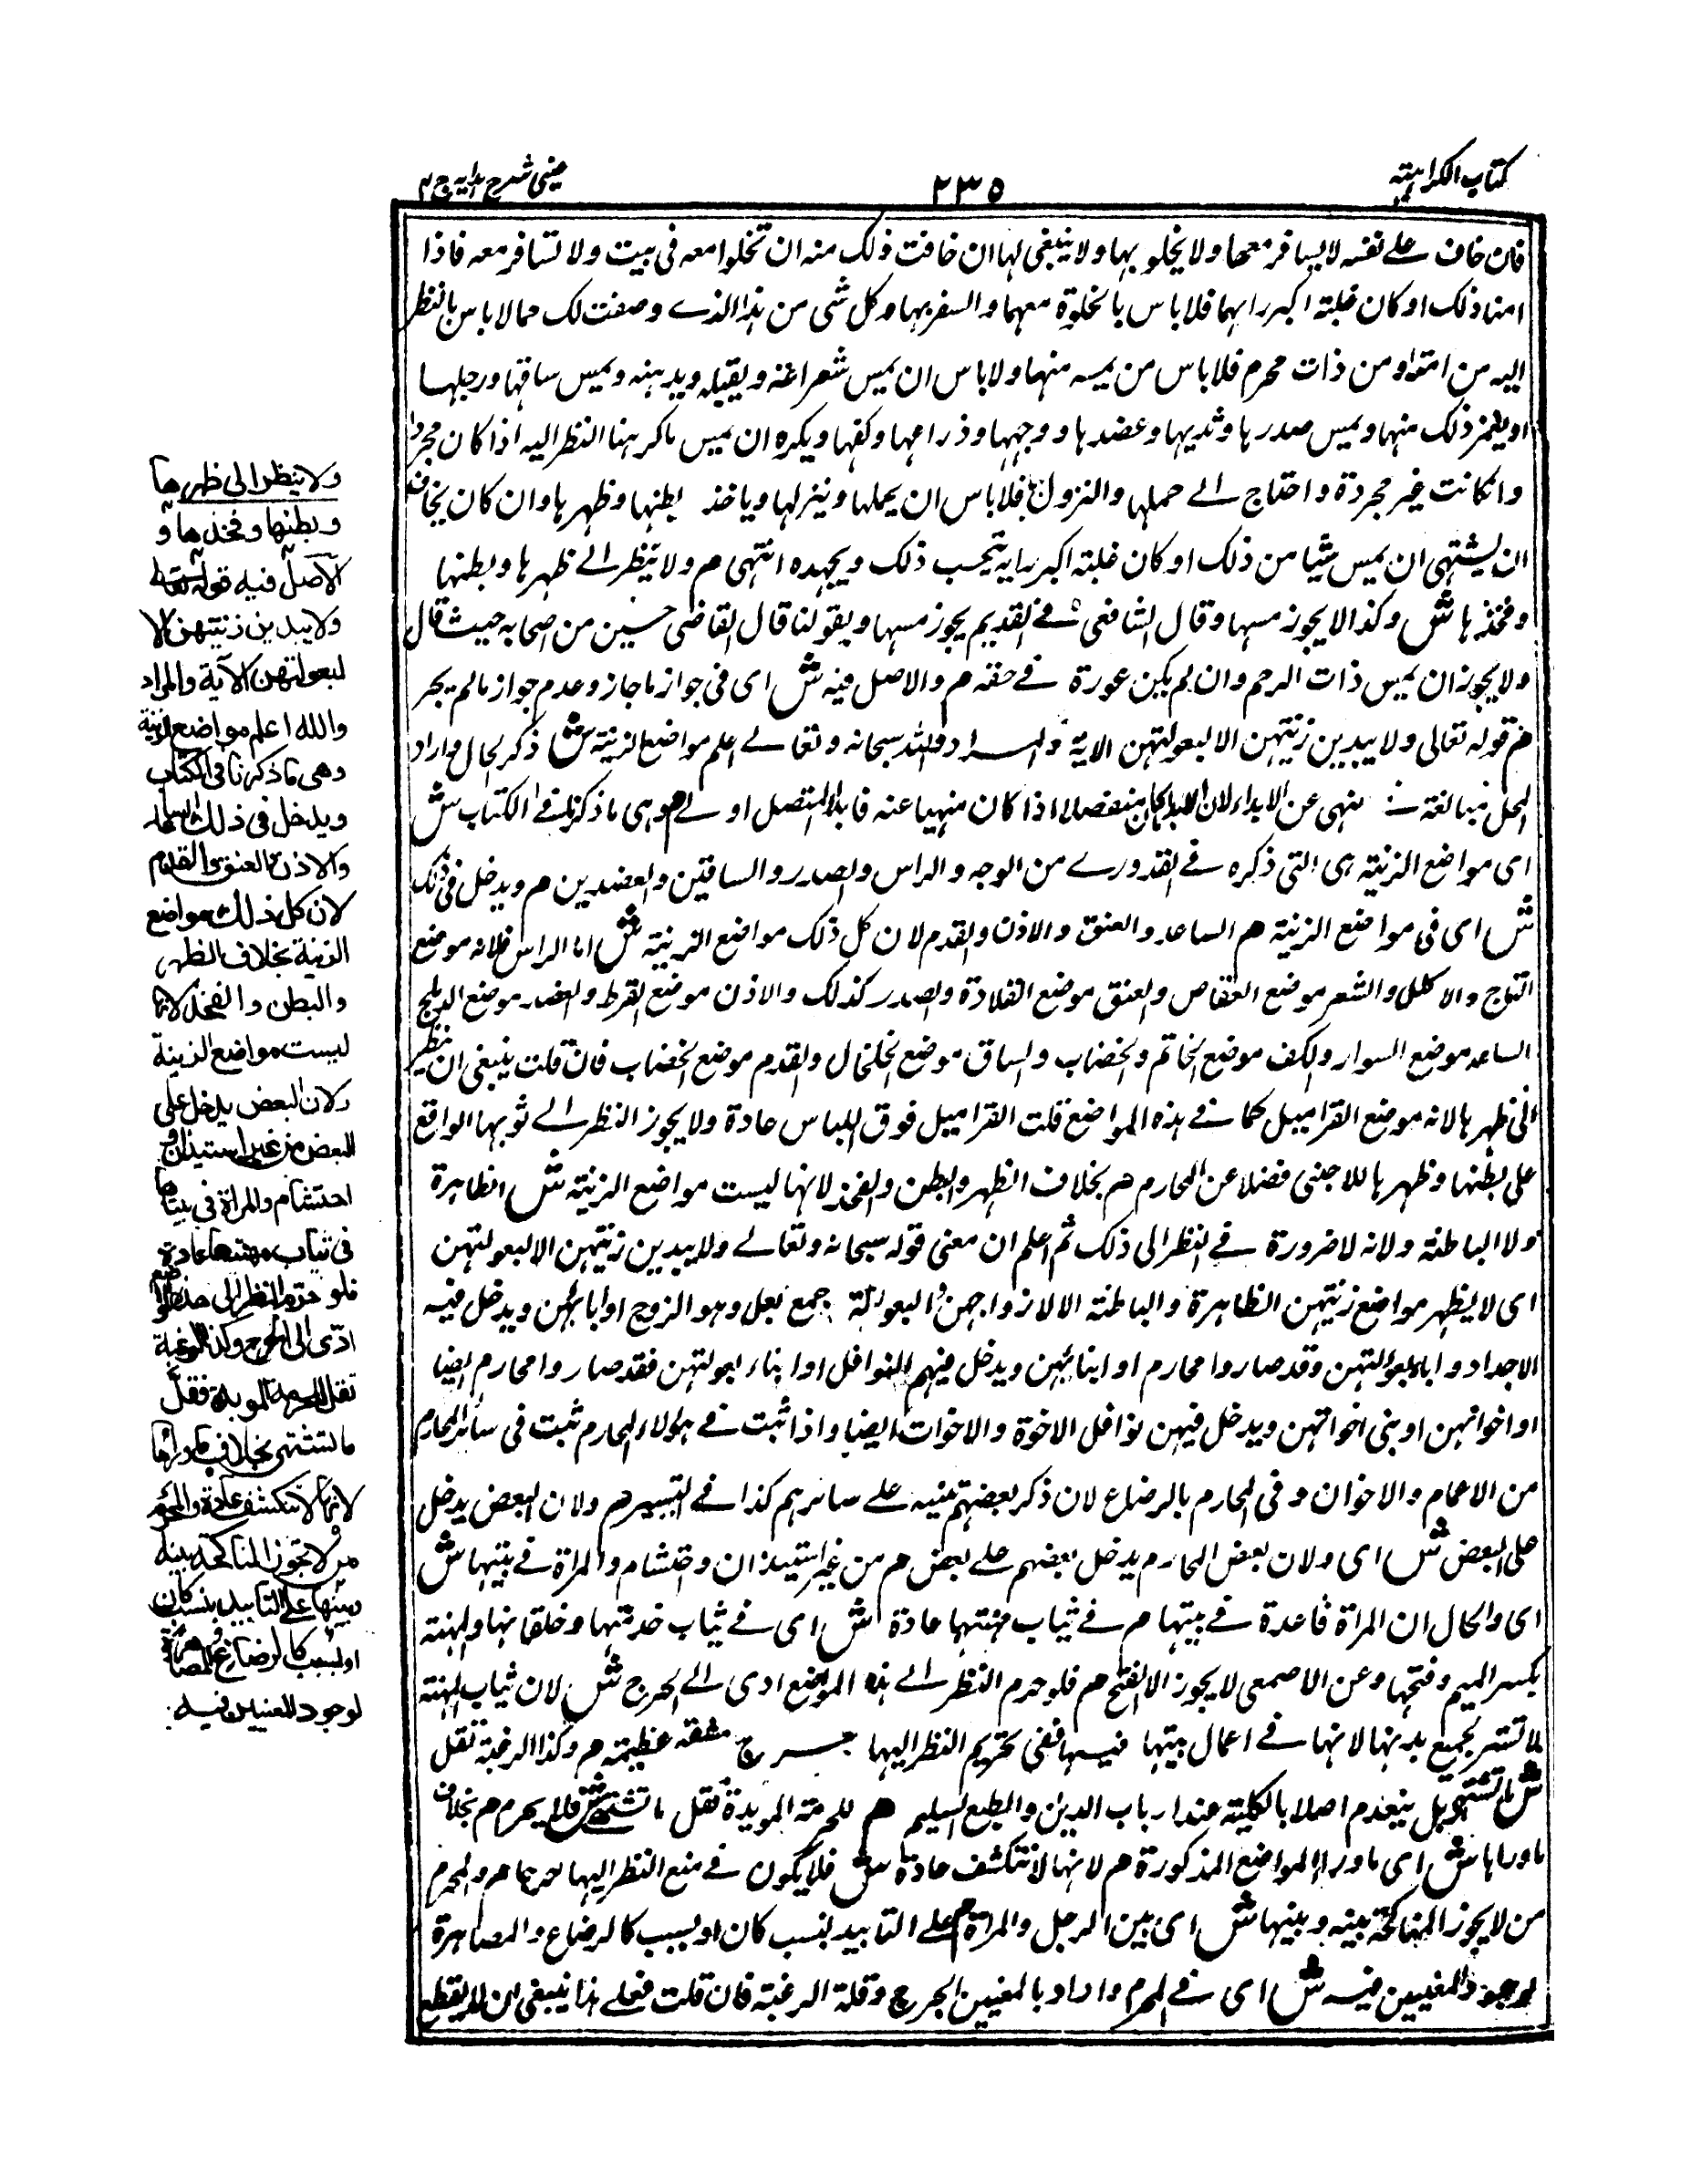 كتاب الكراهية
٢٣٥
عيني شرح هدايه ج ٤
فان خاف على نفسه لا يسافر معها ولا يخلو بها ولا ينبغي لها ان خافت ذلك منه ان تخلوا معه في بيت ولا تسافر معه فاذا
امنا ذلك او كان غلبة اكبر رايهما فلا باس بالخلوة معهما والسفر بها وكل شي من هذا الذي وصفت لك مما لا باس بالنظر
اليه من امته او من ذات محرم فلا باس من يمسه منها ولا باس ان يمس شعر اغنه ويقبله ويدهنه ويمس ساقها ورجلها
او يغمز ذلك منها ويمس صدرها وثديها وعضدها ووجهها وذراعها وكفها ويكره ان يمس ما كرهنا النظر اليه اذا كان مجردا
وانكانت غير مجردة واحتاج الى حملها والنزول بها فلا باس ان يحملها وينزلها وياخذ بطنها وظهرها وان كان يخاف
ان يشتهي ان يمس شيا من ذلك او كان غلبة اكبر رايه يتجنب ذلك ويجهده انتهى م ولا ينظر الى ظهرها وبطنها
وفخذها ش وكذا لا يجوز مسها وقال الشافعي في القديم يجوز مسها وبقولنا قال القاضي حسين من اصحابه حيث قال
ولا يجوز ان يمس ذات الرحم وان لم يكن عورة في حقه م والاصل فيه ش اي في جواز ما جاز وعدم جواز ما لم يجز
م قوله تعالى ولا يبدين زينتهن الا لبعولتهن الاية والمراد والله سبحانه وتعالى اعلم مواضع الزينة ش ذكر الحال واراد
المحل مبالغة في نهي عن الابداء لان الابداء كان منفصلا اذا كان منهيا عنه فابداء المتصل اولى م وهي ما ذكرنا في الكتاب ش
اي مواضع الزينة هي التي ذكره في القدوري من الوجه والراس والصدر والساقين والعضدين م ويدخل في ذلك
ش اى في مواضع الزينة م الساعد والعنق والاذن والقدم لان كل ذلك مواضع الزينة ش اما الراس فلانه موضع
التاج والاكليل والشعر موضع العقاص والعنق موضع القلادة والصدر كذلك والاذن موضع القرط والعضد موضع الدملج
الساعد موضع السوار والكف موضع الخاتم والخضاب والساق موضع الخلخال والقدم موضع الخضاب فان قلت ينبغي ان ينظر
الى ظهرها لانه موضع القراميل كما في هذه المواضع قلت القراميل فوق اللباس عادة ولا يجوز النظر الى ثوبها الواقع
على بطنها وظهرها للاجنبي فضلا عن المحارم م بخلاف الظهر والبطن والفخذ لانها ليست مواضع الزينة ش الظاهرة
ولا الباطنة ولانه لا ضرورة في النظر الى ذلك ثم اعلم ان معنى قوله سبحانه وتعالى ولا يبدين زينتهن الا لبعولتهن
اى لا يظهر مواضع زينتهن الظاهرة والباطنة الا لازواجهن والبعولة جمع بعل وهو الزوج او ابائهن ويدخل فيه
الاجداد واباء بعولتهن وقد صاروا محارم او ابنائهن ويدخل فيهم النوافل او ابناء بعولتهن فقد صاروا محارم ايضا
او اخوانهن او بني اخواتهن ويدخل فيهن نوافل الاخوة والاخوات ايضا واذا ثبت في هولاء المحارم ثبت في سائر المحارم
من الاعمام والاخوان وفي المحارم بالرضاع لان ذكر بعضهم تنبيه على سائرهم كذا في التيسير م ولان البعض يدخل
على البعض ش اى ولان بعض المحارم يدخل بعضهم على بعض م من غير استيذان واحتشام والمراة في بيتها ش
اى والحال ان المراة قاعدة في بيتها م في ثياب مهنتها عادة ش اى في ثياب خدمتها وخلقانها والمهنة
بكسر الميم وفتحها وعن الاصمعي لا يجوز الا الفتح م فلو حرم النظر الى هذه المواضع ادى الى الحرج ش لان ثياب المهنة
لا تستر بجميع بدنها لانها في اعمال بيتها فيها ففي تحريم النظر اليها حرج مشقة عظيمة م وكذا الرغبة تقل
ش ما تشتهي بل ينعدم اصلا بالكلية عند ارباب الدين والطبع السليم م للحرمة الموبدة فقل ما تشتهي ش فلا يحرم م بخلاف
ما وراها ش اى ما وراء المواضع المذكورة م لانها لا تنكشف عادة ش فلا يكون في منع النظر اليها حرجا م والمحرم
من لا يجوز المناكحة بينه وبينها ش اى بين الرجل والمراة م على التابيد بنسب كان او بسبب كالرضاع والمصاهرة
لوجود المعنيين فيه ش اى في المحرم واراد بالمعنيين الحرج وقلة الرغبة فان قلت فعلى هذا ينبغي ان لا يقطع
ولا ينظر الى ظهرها
وبطنها وفخذها و
الاصل فيه قوله تعالى
ولا يبدين زينتهن الا
لبعولتهن الآية والمراد
والله اعلم مواضع الزينة
وهى ما ذكرنا فى الكتاب
ويدخل فى ذلك الساعد
والاذن والعنق والقدم
لان كل ذلك مواضع
الزينة بخلاف الظهر
والبطن والفخذ لانها
ليست مواضع الزينة
ولان البعض يدخل على
البعض من غير استيذان و
احتشام والمراة فى بيتها
فى ثياب مهنتها عادة
فلو حرم النظر الى هذه المواضع
ادى الى الحرج وكذا الرغبة
تقل للحرمة الموبدة فقل
ما تشتهى بخلاف ما وراءها
لانها لا تنكشف عادة والمحرم
من لا تجوز المناكحة بينه
وبينها على التابيد بنسب كان
او بسبب كالرضاع والمصاهرة
لوجود المعنيين فيه